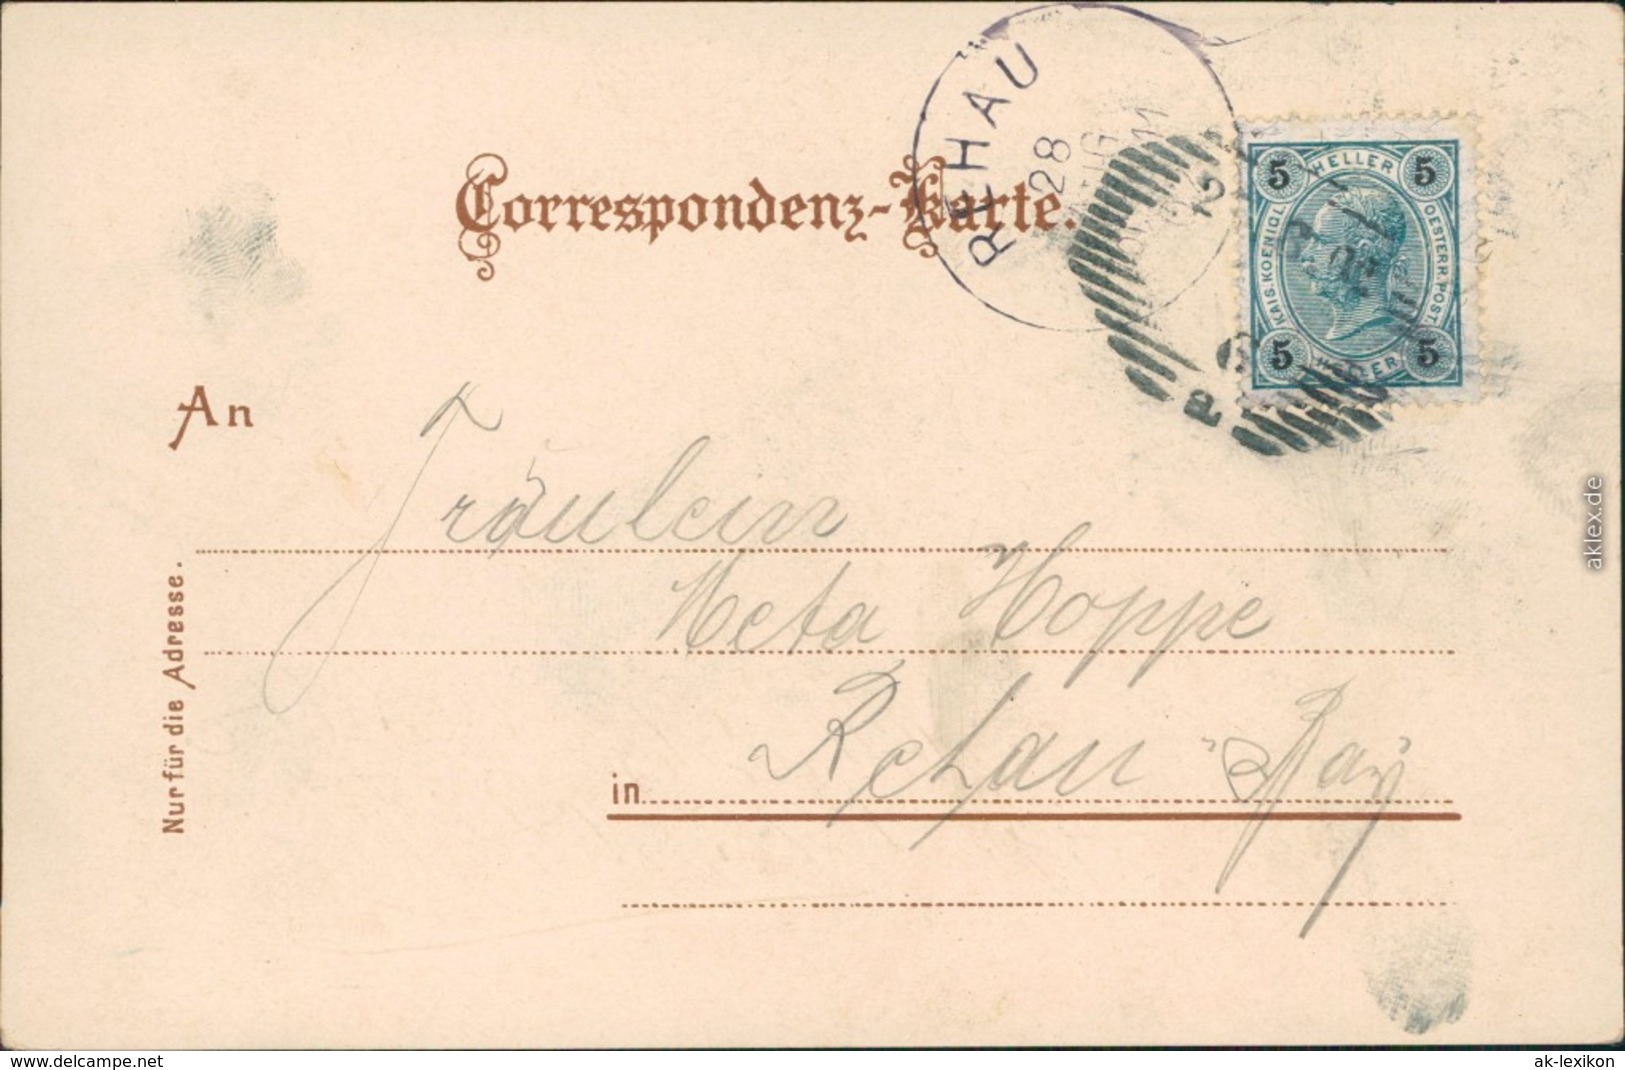 REHAU
28
AUG
11
Correspondenz-Karte.
5 HELLER 5
KAIS. KOENIGL. OESTERR. POST.
5 HELLER 5
An
Fräulein
Meta Hoppe
in Rehau Bay
Nur für die Adresse.
aklex.de
www.delcampe.net
ak-lexikon